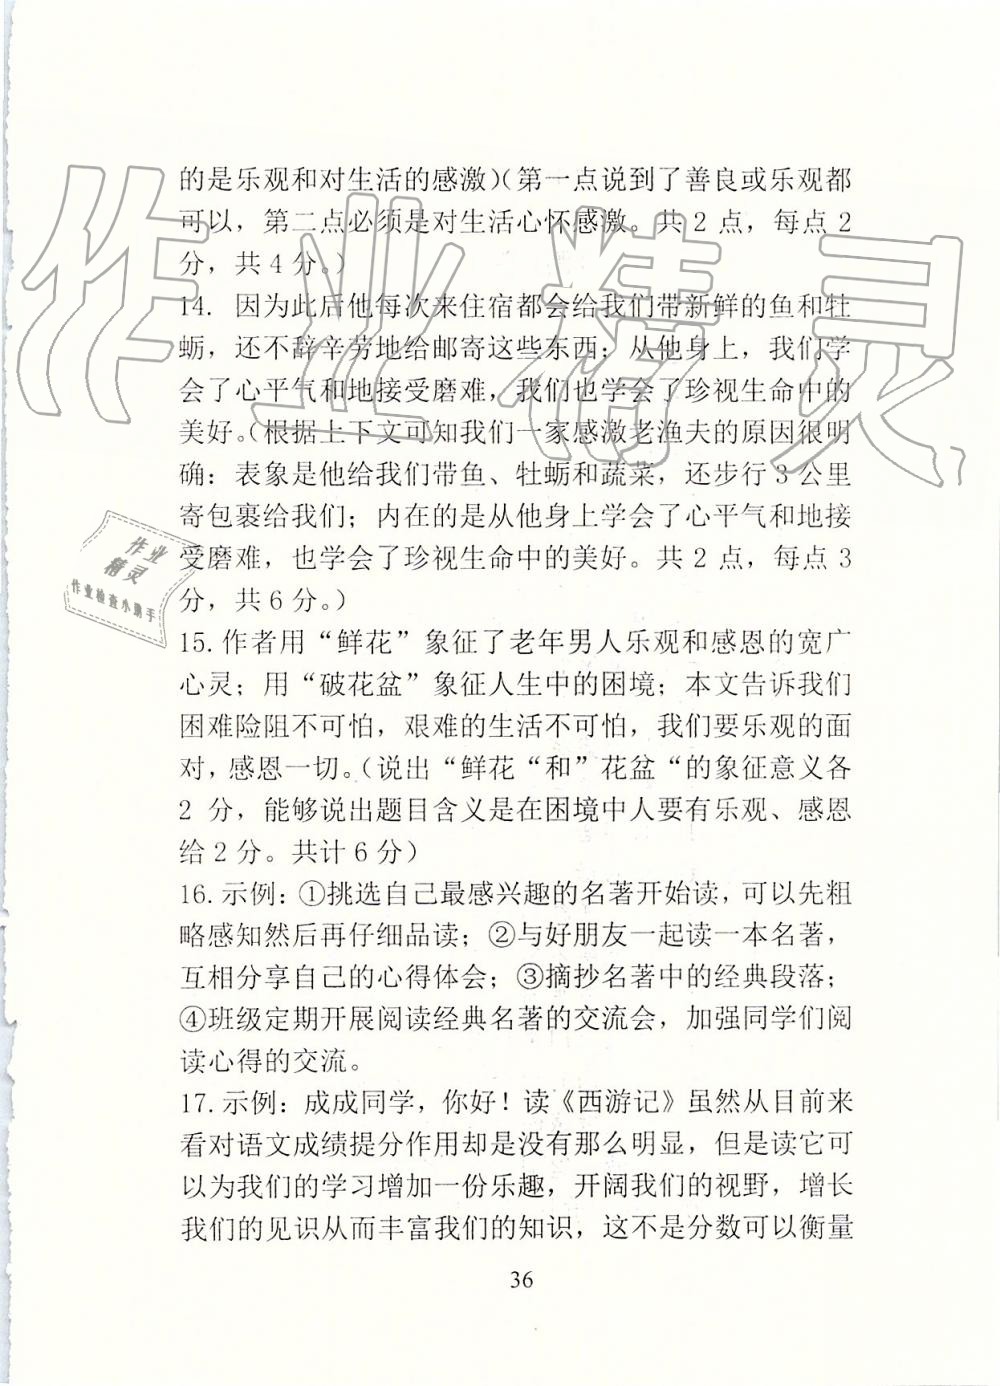 的是乐观和对生活的感激)(第一点说到了善良或乐观都
可以，第二点必须是对生活心怀感激。共2点，每点2
分，共4分。)
14. 因为此后他每次来住宿都会给我们带新鲜的鱼和牡
蛎，还不辞辛劳地给邮寄这些东西；从他身上，我们学
会了心平气和地接受磨难，我们也学会了珍视生命中的
美好。(根据上下文可知我们一家感激老渔夫的原因很明
确：表象是他给我们带鱼、牡蛎和蔬菜，还步行3公里
寄包裹给我们；内在的是从他身上学会了心平气和地接
受磨难，也学会了珍视生命中的美好。共2点，每点3
分，共6分。)
15. 作者用“鲜花”象征了老年男人乐观和感恩的宽广
心灵；用“破花盆”象征人生中的困境；本文告诉我们
困难险阻不可怕，艰难的生活不可怕，我们要乐观的面
对，感恩一切。(说出“鲜花“和”花盆“的象征意义各
2 分，能够说出题目含义是在困境中人要有乐观、感恩
给2分。共计6分)
16. 示例：①挑选自己最感兴趣的名著开始读，可以先粗
略感知然后再仔细品读；②与好朋友一起读一本名著，
互相分享自己的心得体会；③摘抄名著中的经典段落；
④班级定期开展阅读经典名著的交流会，加强同学们阅
读心得的交流。
17. 示例：成成同学，你好！读《西游记》虽然从目前来
看对语文成绩提分作用却是没有那么明显，但是读它可
以为我们的学习增加一份乐趣，开阔我们的视野，增长
我们的见识从而丰富我们的知识，这不是分数可以衡量
36
作业精灵
作业
精灵
作业检查小助手